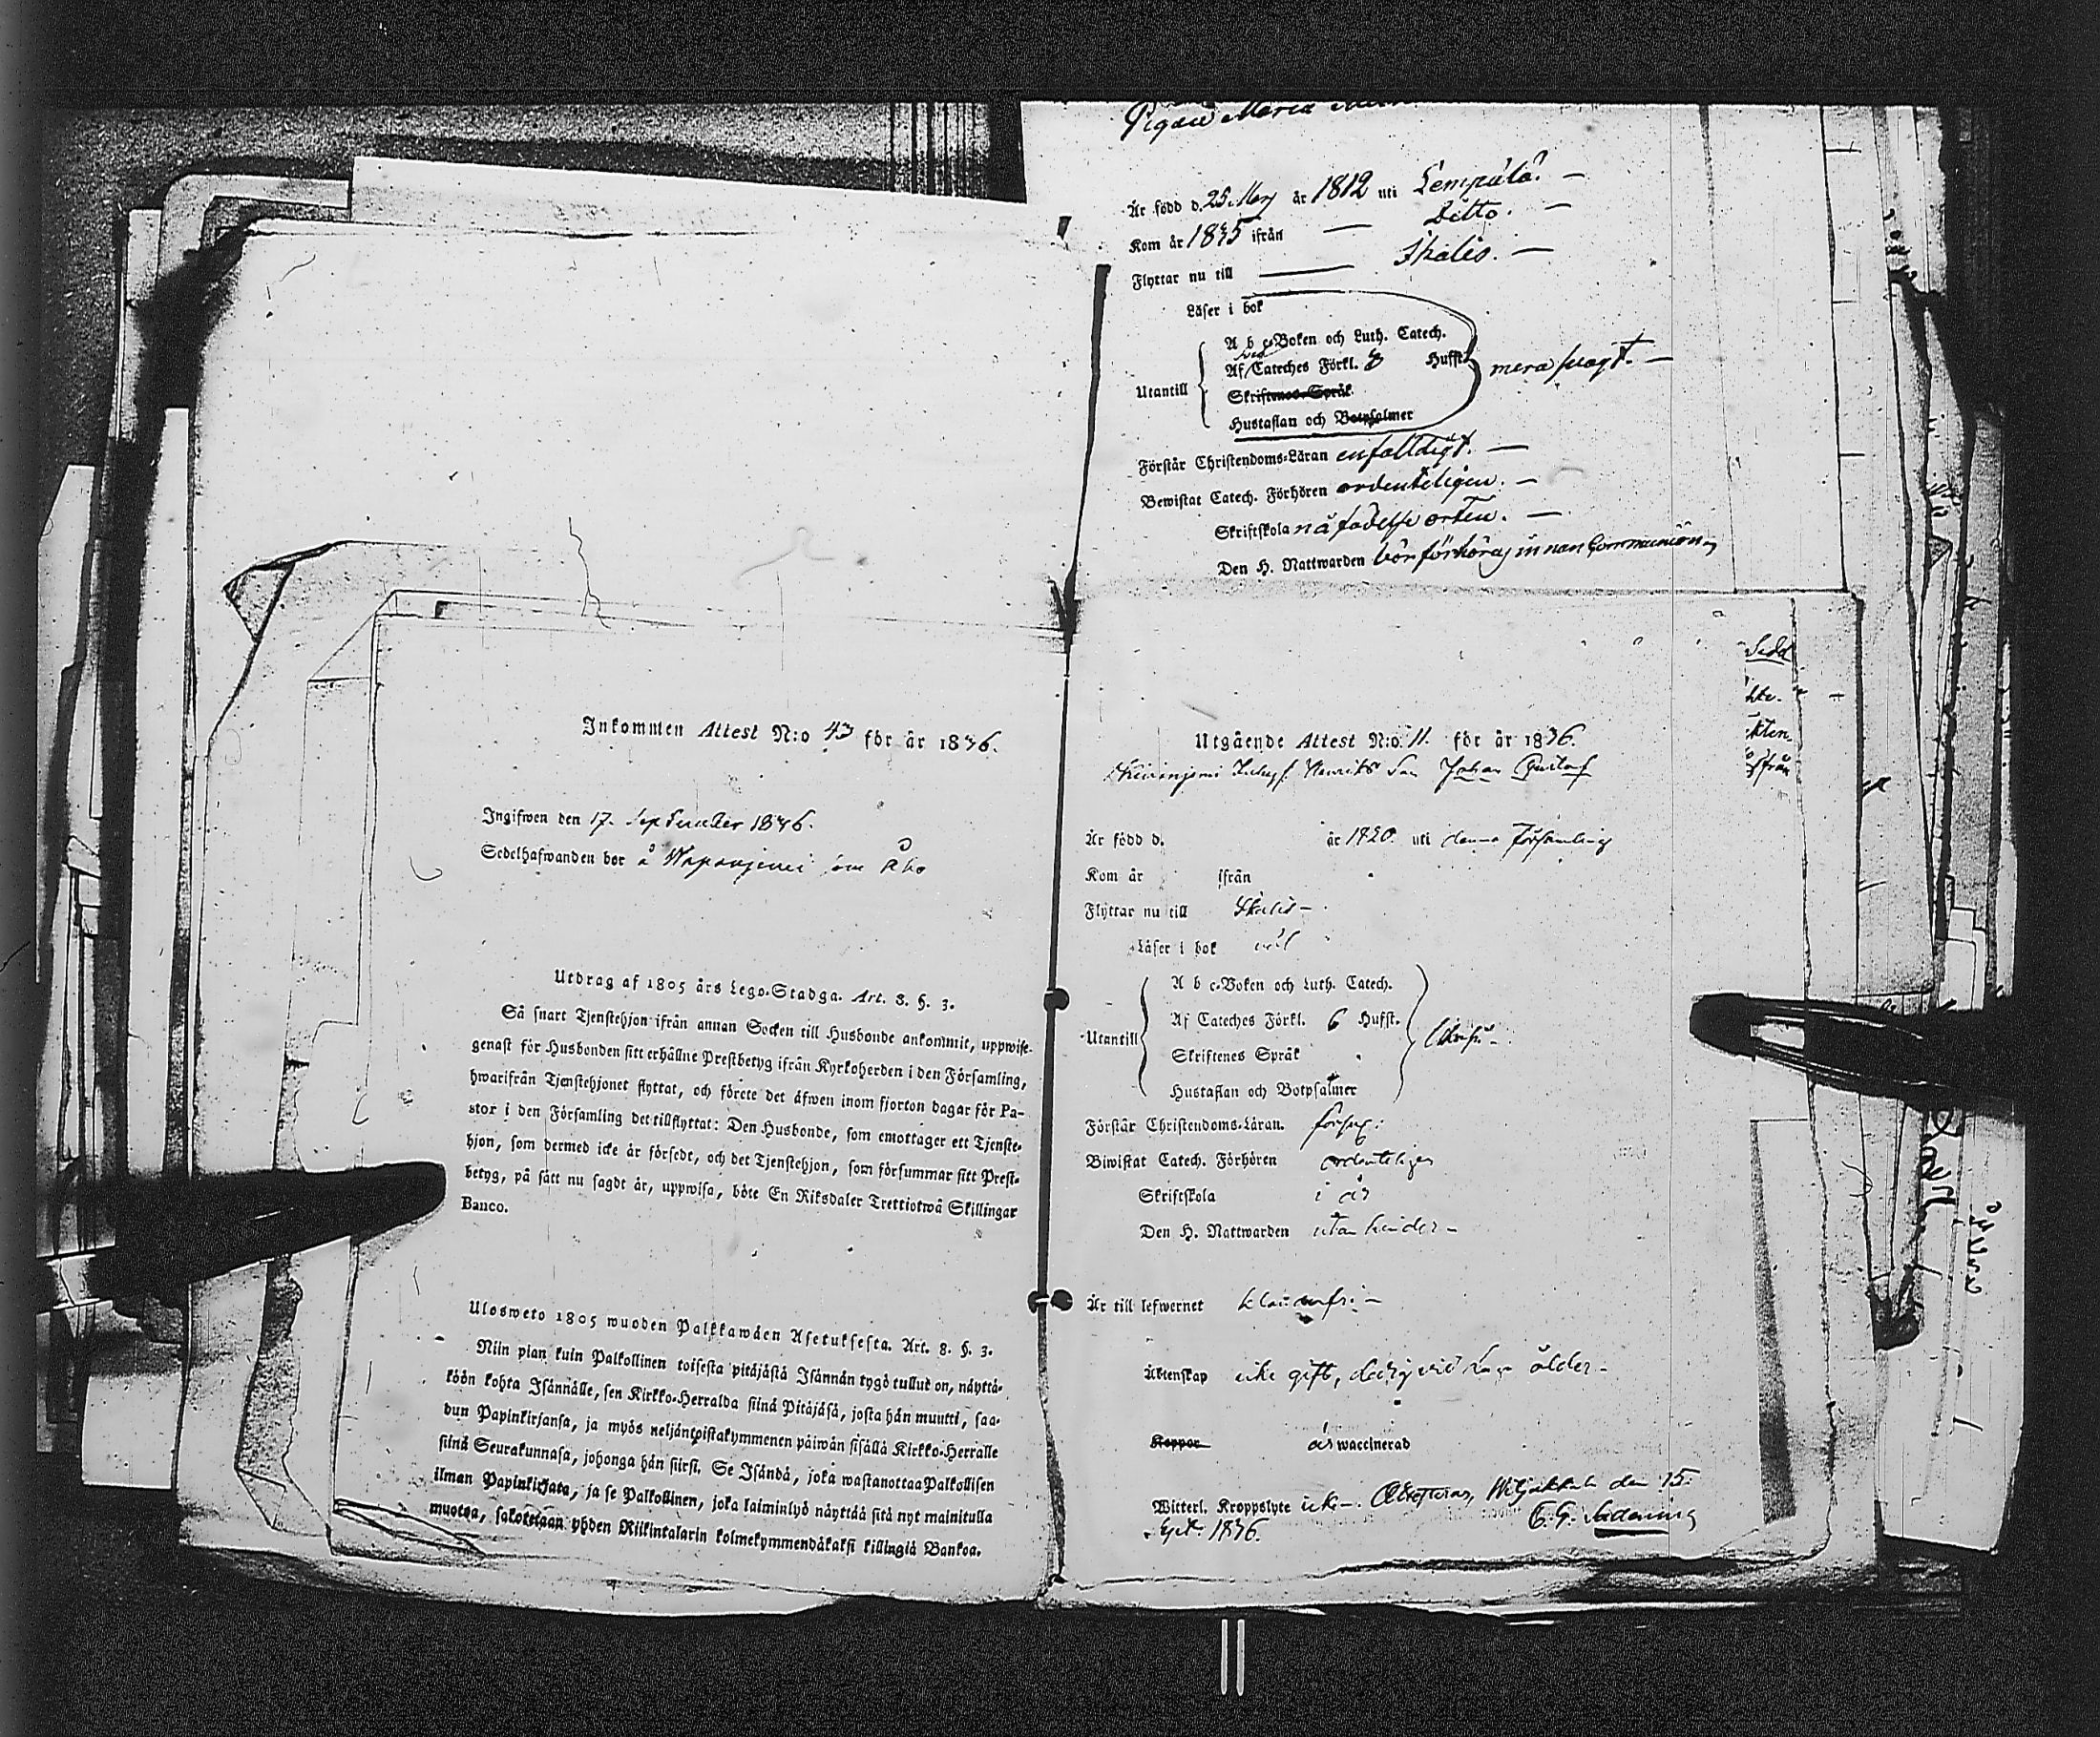 Pigan Maria
Är född d. 25 Maij år 1812 uti Lempälä. —
Kom år 1835 ifrån — Ditto. —
Flyttar nu till — Ikalis. —
Läser i bok
A b c-Boken och Luth. Catech.
Af Cateches Förkl. Hufst.
Utantill
Skriftenes Språk
Hustaflan och Botpsalmer
mera swagt. —
Förstår Christendoms-Läran enfalldigt. —
Bewistat Catech. Förhören ordenteligen. —
Skriftskola på födelse orten. —
Den H. Nattwarden bör förhöras innan Communion
Inkommen Attest N:o 43 för år 1836.
Ingifwen den 17. September 1836.
Sedelhafwanden bor å
Utdrag af 1805 års Lego-Stadga. Art. 8. §. 3.
Så snart Tjenstehjon ifrån annan Socken till Husbonde ankommit, uppwise
genast för Husbonden sitt erhållne Prestbetyg ifrån Kyrkoherden i den Församling,
hwarifrån Tjenstehjonet flyttat, och förete det äfwen inom fjorton dagar för Pa-
stor i den Församling det tillflyttat: Den Husbonde, som emottager ett Tjenste-
hjon, som dermed icke är försedt, och det Tjenstehjon, som försummar sitt Prest-
betyg, på sätt nu sagdt är, uppwisa, böte En Riksdaler Trettiotwå Skillingar
Banco.
Ulosweto 1805 wuoden Palkkawäen Asetuksesta. Art. 8. §. 3.
Niin pian kuin Palkollinen toisesta pitäjästä Isännän tygö tullut on, näyttä-
köön kohta Isännälle, sen Kirkko-Herralda siinä Pitäjäsä, josta hän muutti, saa-
dun Papinkirjansa, ja myös neljäntoistakymmenen päiwän sisällä Kirkko-Herralle
siinä Seurakunnasa, johonga hän siirsi. Se Isändä, joka wastanottaa Palkollisen
ilman Papinkirjata, ja se Palkollinen, joka laiminlyö näyttää sitä nyt mainitulla
muotoa, sakotetaan yhden Riikintalarin kolmekymmendäkaksi killingiä Bankoa.
Utgående Attest N:o 11. för år 1836.
Henriks Son Johan Gustaf
Är född d. år 1820. uti denna Församling
Kom år ifrån
Flyttar nu till Ikalis —
Läser i bok wäl
A b c-Boken och Luth. Catech.
Af Cateches Förkl. 6 Hufst.
Utantill
Skriftenes Språk
Hustaflan och Botpsalmer
Förstår Christendoms-Läran. försv:
Biwistat Catech. Förhören ordenteligen
Skriftskola i år
Den H. Nattwarden utan hinder —
Är till lefwernet klanderfri —
Äktenskap icke gift, ledig vid sin ålder —
Koppor är waccinerad
Witterl. Kroppslyte icke —. Attesteras, Wiljakkala den 15.
Sept. 1836.